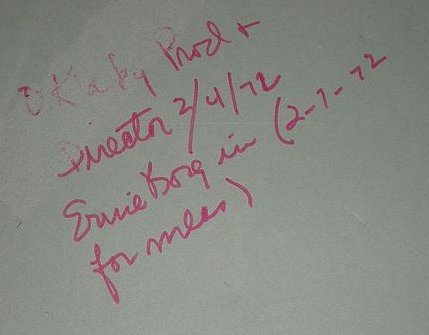 Okaky Prod +
Director 2/4/72
Ernie Borg in (2-7-72
for mess)